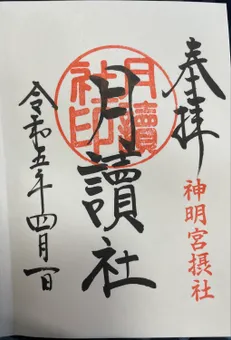 奉拝
神明宮摂社
月讀社
月讀社印
令和五年四月一日